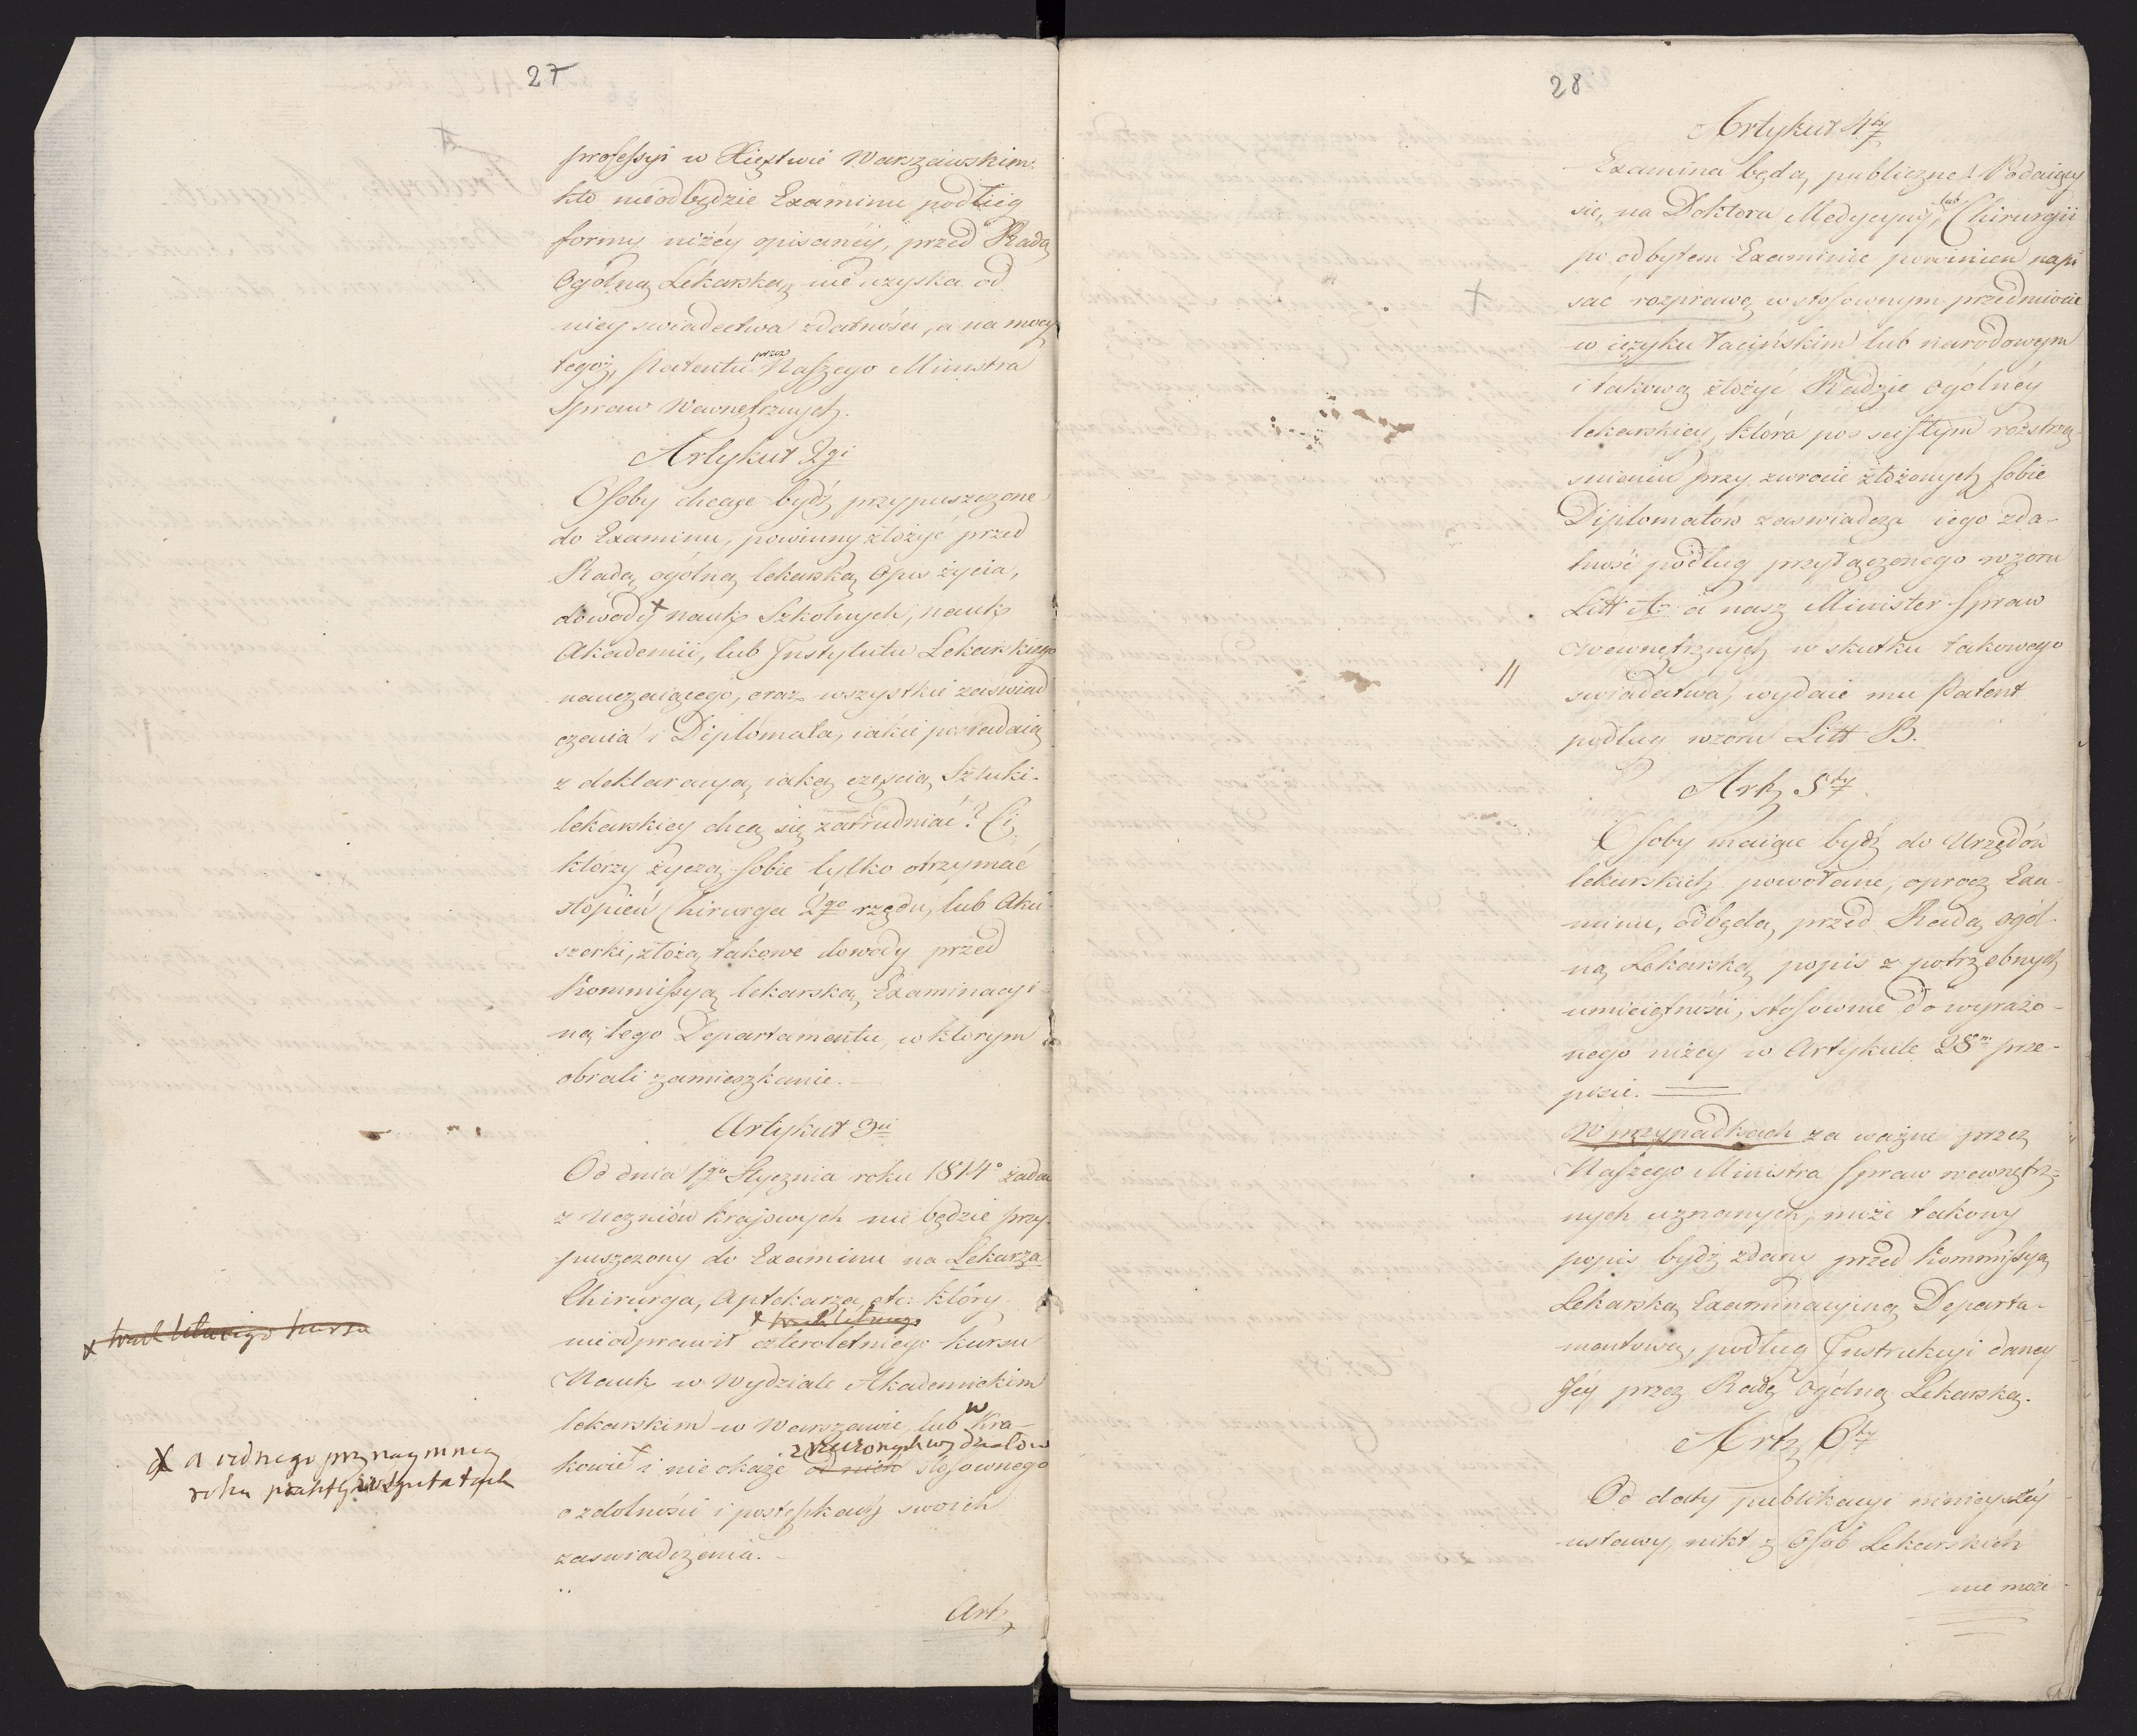 27
professyi w Xięstwie Warszawskim.
kto nieodbędzie Examinu podług
formy niżéy opisanéy, przed Radą
Ogólną Lekarską, nie uzyska od
niey swiadectwa zdatności, a na mocy
tegoż, Patentu przez Naszego Ministra
Spraw Wewnętrznych.
Artykuł 2gi
Osoby chcące bydź przypuszczone
do Examinu, powinny złożyć przed
Radą ogólną lekarską opis życia,
dowody + nauk Szkolnych, nauk
Akademii, lub Instytutu Lekarskiego
nauczaiącego, oraz wszystkie zaswiad
czenia i Diplomata, iakie posiadaią
z deklaracyą, iaką częścią Sztuki
lekarskiey chcą się zatrudniać? Ci,
ktorzy życzą sobie tylko otrzymać
stopień Chirurga 2go rzędu, lub Aku
szerki, złożą takowe dowody przed
Kommissyą lekarską Examinacyi
ną tego Departamentu, w ktorym
obrali zamieszkanie.
Artykuł 3ci
Od dnia 1go Stycznia roku 1814o żaden
z Uczniów krajowych nie będzie przy
puszczony do Examinu na Lekarza
Chirurga, Aptekarza, etc: który
nieodprawił czteroletniego kursu
Nauk w Wydziale Akademickim
lekarskim w Warszawie, lub w Kra-
kowie + i nie okaże z rzeczonych wydziałów od nich stosownego
o zdolności i postępkach swoich
zaswiadczenia.
Art,
x kursu
x a iednego przynaymniey
roku praktyki w szpitalach
28
Artykuł 4ty
Examina będą publiczne! Podaiący
się, na Doktora Medycyny, lub Chirurgii
po odbytem Examinie powinien napi
sać rozprawę w stosownym przedmiocie
w ięzyku łacińskim lub narodowym
i takową złożyć Radzie Ogólnéy
lekarskiey, która po scisłym rozstrzą-
snieniu przy zwrocie złożonych sobie
Diplomatów zaswiadcza iego zda-
tność podług przyłączonego wzoru
Litt A. a nasz Minister Spraw
wewnętrznych w skutku takowego
swiadectwa, wydaie mu Patent
podług wzoru Litt B.
Art, 5ty
Osoby maiące bydź do Urzędów
lekarskich powołane, oprocz Exa-
minu, odbędą przed Radą ogól-
ną Lekarską popis z potrzebnych
umieiętności, stosownie do wyrażo-
nego niżey w Artykule 28m prze-
pisie.
W przypadkach za ważne przez
Naszego Ministra Spraw wewnętrz-
nych uznanych, może takowy
popis bydź zdany przed Kommissyą
Lekarską Examinacyiną Departa-
mentową, podług Instrukcyi daney
Jéy przez Radę Ogólną Lekarską.
Art, 6ty
Od daty publikacyi ninieyszéy
ustawy, nikt z Osób Lekarskich
nie może